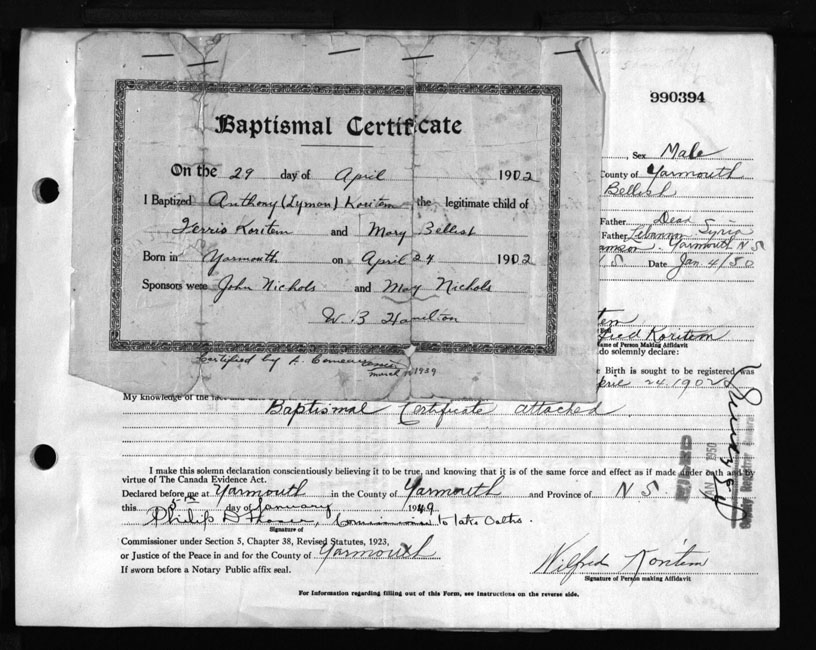 990394
Baptismal Certificate
On the 29 day of April 1902
I Baptized Anthony (Lyman) Koritem the legitimate child of
Ferris Koritem and Mary Bellesh
Born in Yarmouth on April 24 1902
Sponsors were John Nichols and May Nichols
W. B Hamilton
Certified by A. Comeau
march 1939
, Sex Male
County of Yarmouth
Bellish
Father Dead
Father Lebanon Syria
Yarmouth N S
Date Jan 4/50
Koritem
Name of Person Making Affidavit
do solemnly declare:
Birth is sought to be registered was
24 1902
My knowledge of the
Baptismal Certificate attached
I make this solemn declaration conscientiously believing it to be true, and knowing that it is of the same force and effect as if made under oath and by
virtue of The Canada Evidence Act.
Declared before me at Yarmouth in the County of Yarmouth and Province of N S.
this 5th day of January 1949
Philip D , Commissioner to take Oaths.
Signature of
Commissioner under Section 5, Chapter 38, Revised Statutes, 1923,
or Justice of the Peace in and for the County of Yarmouth
If sworn before a Notary Public affix seal.
Wilfred Koritem
Signature of Person making Affidavit
For Information regarding filling out of this Form, see Instructions on the reverse side.
FILED
JAN 1950